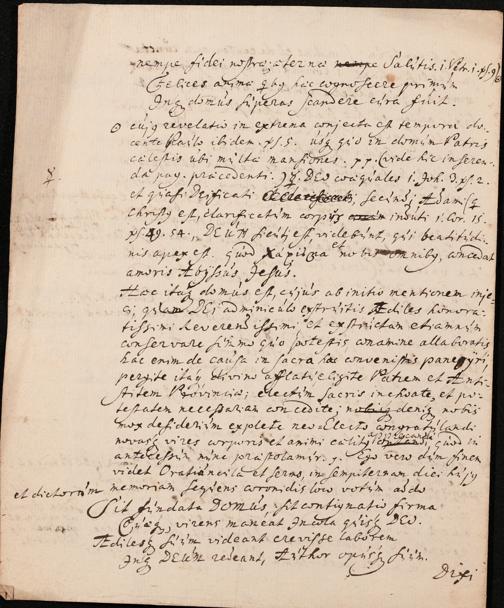 nempe fidei nostræ æternæ Salutis. 1. Petr. 1. ps. 9.
Felices animæ quibus hæc cognoscere primum
Inque domus superas scandere cura fuit.
cujus revelatio in extrema conjecta est tempora do-
cente Paulo ibidem. ps. 5. usque quo in domum Patris
cælestis ubi multæ mansiones. p. p. (vide hic inseren-
da pag. præcedenti. DEO coæquales 1. Joh. 3. ps. 2.
et quasi Deificati secundus Adamus
Christus est, clarificatum corpus induti 1. Cor. 15.
ps. 49. 54., DEUM sicuti est videbunt, qui beatitudi-
nis apex est. quod et nobis omnibus, concedat
amoris Abyssus Jesus.
Hæc itaque domus est, cujus ab initio mentionem inje-
ci, quam DEI adminiculo exstruitis Ædiles honora-
tissimi Reverendissimi et exstructam etiamnum
conservare summo quo potestis conamine allaboratis
hac enim de causa in sacra has convenistis
pergite itaque divino afflatu eligite Patrem et Anti-
stitem Provinciæ; electum Sacris inchoate, et po-
testatem necessariam concedite; nobis denique nobis
mox desiderium explete neo-Electo congratulandi
novasque vires corporis et animi quod in
antecessum nunc præstolamur. Ego vero dum finem
videt Oratiuncula et sermo, in sempiternam diei hujus
et dictorum memoriam sequens coronidis loco votum addo
Sit fundata DOMUS, sit contignatio firma
virens maneat Incola quisque DEO.
Ædilesque suum videant crevisse laborem
Inque DEUM redeant, Authorque opusque suum.
Dixi